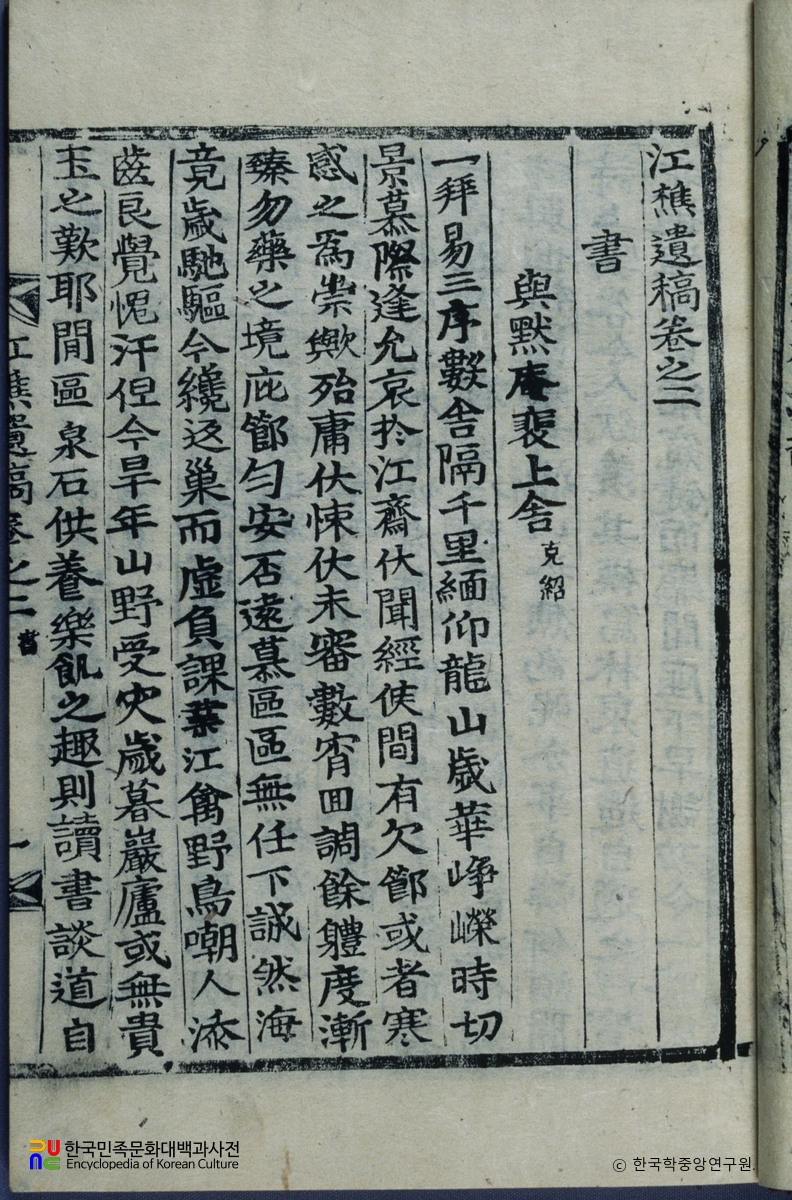 江樵遺稿卷之二
書
與默庵裵上舍 克紹
一拜易三序數舍隔千里緬仰龍山歲華崢嶸時切
景慕際逢允哀扵江齋伏聞經使間有欠節或者寒
感之爲祟歟殆庸伏悚伏未審數宵回調餘軆度漸
臻勿藥之境庇節勻安否遠慕區區無任下誠然海
竟歲馳驅今纔返巢而虛負課業江禽野鳥嘲人添
齒良覺愧汗但今旱年山野受灾歲暮巖廬或無貴
玉之歎耶閒區泉石供養樂飢之趣則讀書談道自
江樵遺稿卷之二 書 一
한국민족문화대백과사전
Encyclopedia of Korean Culture
ⓒ 한국학중앙연구원